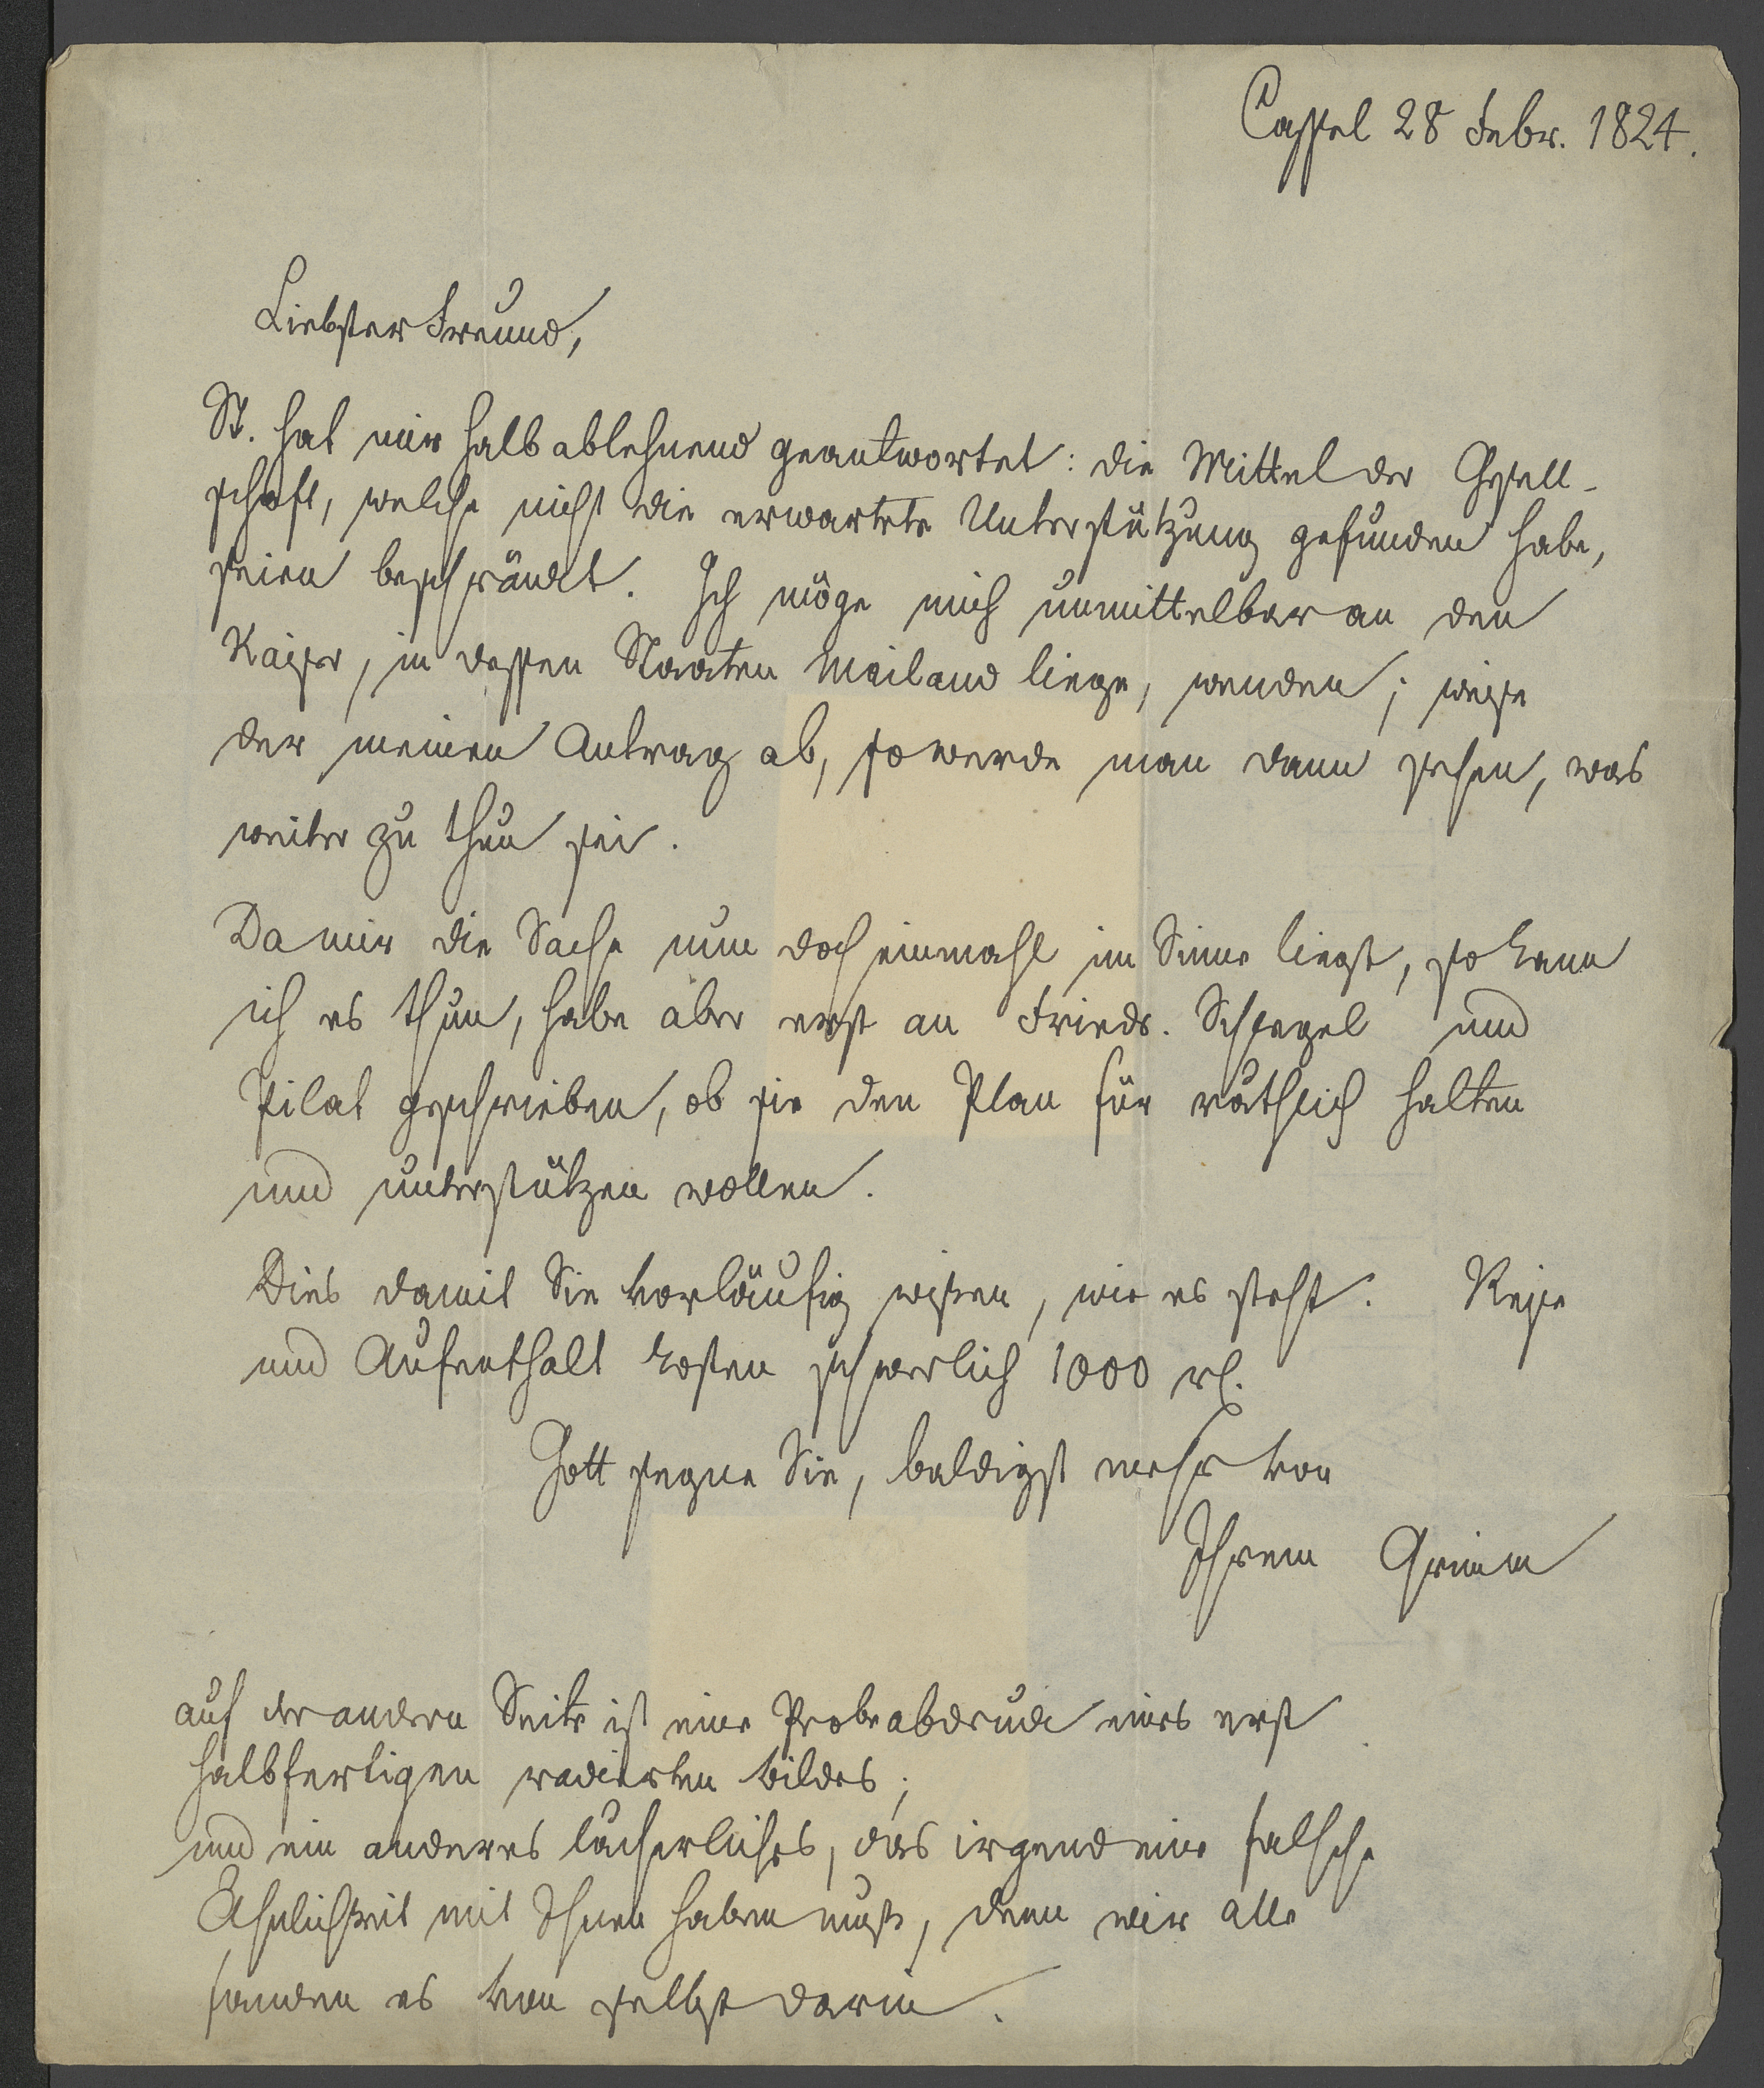 Cassel 28 Febr. 1824.
Liebster Freund,
St. hat mir halb ablehnend geantwortet: die Mittel der Gesell-
schaft, welche nicht die erwartete Unterstützung gefunden habe,
seien beschränckt. Ich möge mich unmittelbar an den
Kaiser, in dessen Staaten Mailand liege, wenden; weise
der meinen Antrag ab, so werde man dann sehen, was
weiter zu thun sei.
Da mir die Sache nun doch einmahl im Sinne liegt, so kann
ich es thun, habe aber erst an Friedr. Schlegel und
Pilat geschrieben, ob sie den Plan für räthlich halten
und unterstützen wollen.
Dies damit Sie vorläufig wissen, wie es steht. Reise
und Aufenthalt kosten schwerlich 1000 rl.
Gott segne Sie, baldigst mehr von
Ihrem Grimm
auf der andern Seite ist eine Probeabdruck eines erst
halbfertigen radierten bildes;
und ein anderes lächerliches, das irgend eine falsche
Ähnlichkeit mit Ihnen haben muß, denn wir alle
fanden es von selbst darin.